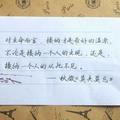 对生命而言，接纳才是最好的温柔，
不论是接纳一个人的出现，还是
接纳一个人的从此不见。
——秋微《莫失莫忘》